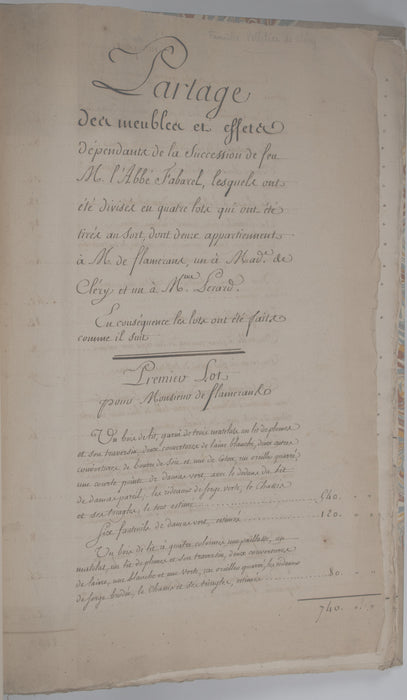 Famille Pelletier de Cléry
Partage
des meubles et effets
dépendants de la Succession de feu
M. l'Abbé Fabarel, lesquels ont
été divisés en quatre lots qui ont été
tirés au sort, dont deux appartiennent
à M. de flamerans, un à Made. de
Cléry et un à Mme. Lerard.
En conséquence les lots ont été faits
comme il suit
Premier Lot
pour Monsieur de flamerans
Un bois de lit, garni de trois matelats un lit de plume
et son traversin, deux couvertures de laine blanche, deux autres
couvertures de bourre de Soie et une de coton, un oreiller quarré,
une courte pointe de damas vert avec le dedans du lit
de damas pareil, les rideaux de serge verte, le chassis
et ses tringles, le tout estimé ........ 540. " "
Six fauteuils de damas vert, estimés ........ 120. " "
Un bois de lit à quatre colonnes, une paillasse, un
matelat, un lit de plume et son traversin, deux couvertures
de laine, une blanche et une verte, un oreiller quarré, les rideaux
de serge brodée, le Chassis et ses tringles, estimés ........ 80. " "
740. " "